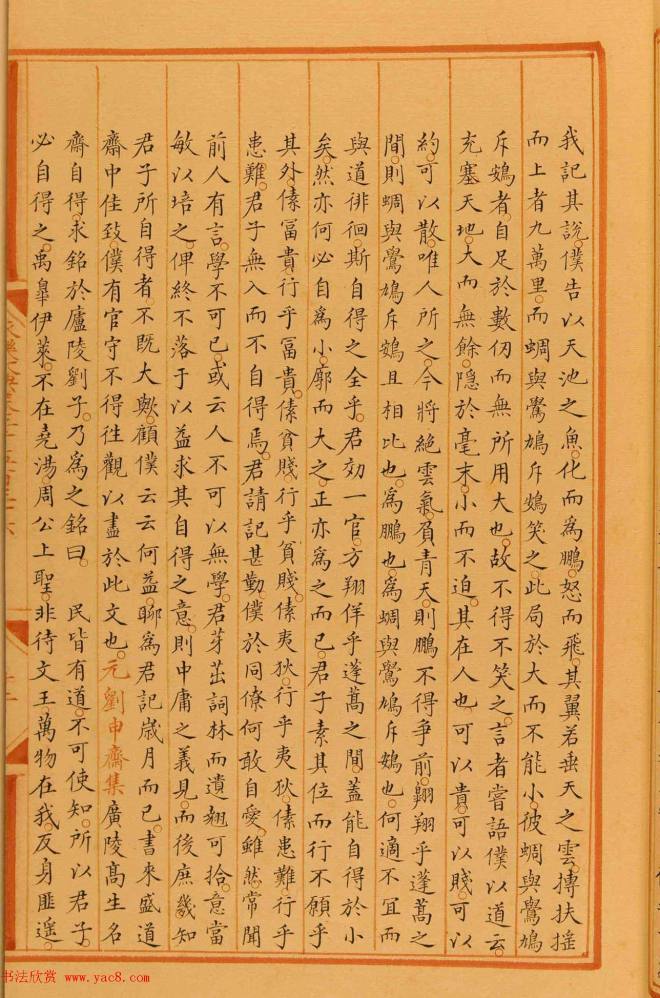 我記其說。僕告以天池之魚。化而為鵬。怒而飛。其翼若垂天之雲。摶扶搖
而上者九萬里。而蜩與鷽鳩斥鴳笑之。此局於大而不能小。彼蜩與鷽鳩
斥鴳者。自足於數仞而無所用大也。故不得不笑之。言者嘗語僕以道云。
充塞天地。大而無餘。隱於毫末。小而不迫。其在人也。可以貴。可以賤。可以
約。可以散。唯人所之。今將絕雲氣。負青天。則鵬不得爭前。翺翔乎蓬蒿之
間。則蜩與鷽鳩斥鴳且相比也。為鵬也。為蜩與鷽鳩斥鴳也。何適不宜。而
與道徘徊。斯自得之全乎。君効一官。方翔佯乎蓬蒿之間。蓋能自得於小
矣。然亦何必自為小。廓而大之。正亦為之而已。君子素其位而行。不願乎
其外。傃冨貴。行乎冨貴。傃貧賤。行乎貧賤。傃夷狄。行乎夷狄。傃患難。行乎
患難。君子無入而不自得焉。君請記甚勤。僕於同僚何敢自愛。雖然。常聞
前人有言。學不可已。或云人不可以無學。君芽茁詞林而遺翘可拾。意當
敏以培之。俾終不落于以益求其自得之意。則中庸之義見。而後庶幾知
君子所自得者不既大歟。顧僕云云何益。聊為君記歲月而已。書來盛道
齋中佳致。僕有官守不得徃觀以盡於此文也。元劉申齋集廣陵髙生名
齋自得。求銘於廬陵劉子。乃為之銘曰。民皆有道。不可使知。所以君子。
必自得之。禹臯伊萊。不在堯湯。周公上聖。非待文王。萬物在我。反身匪遥。
书法欣赏 www.yac8.com